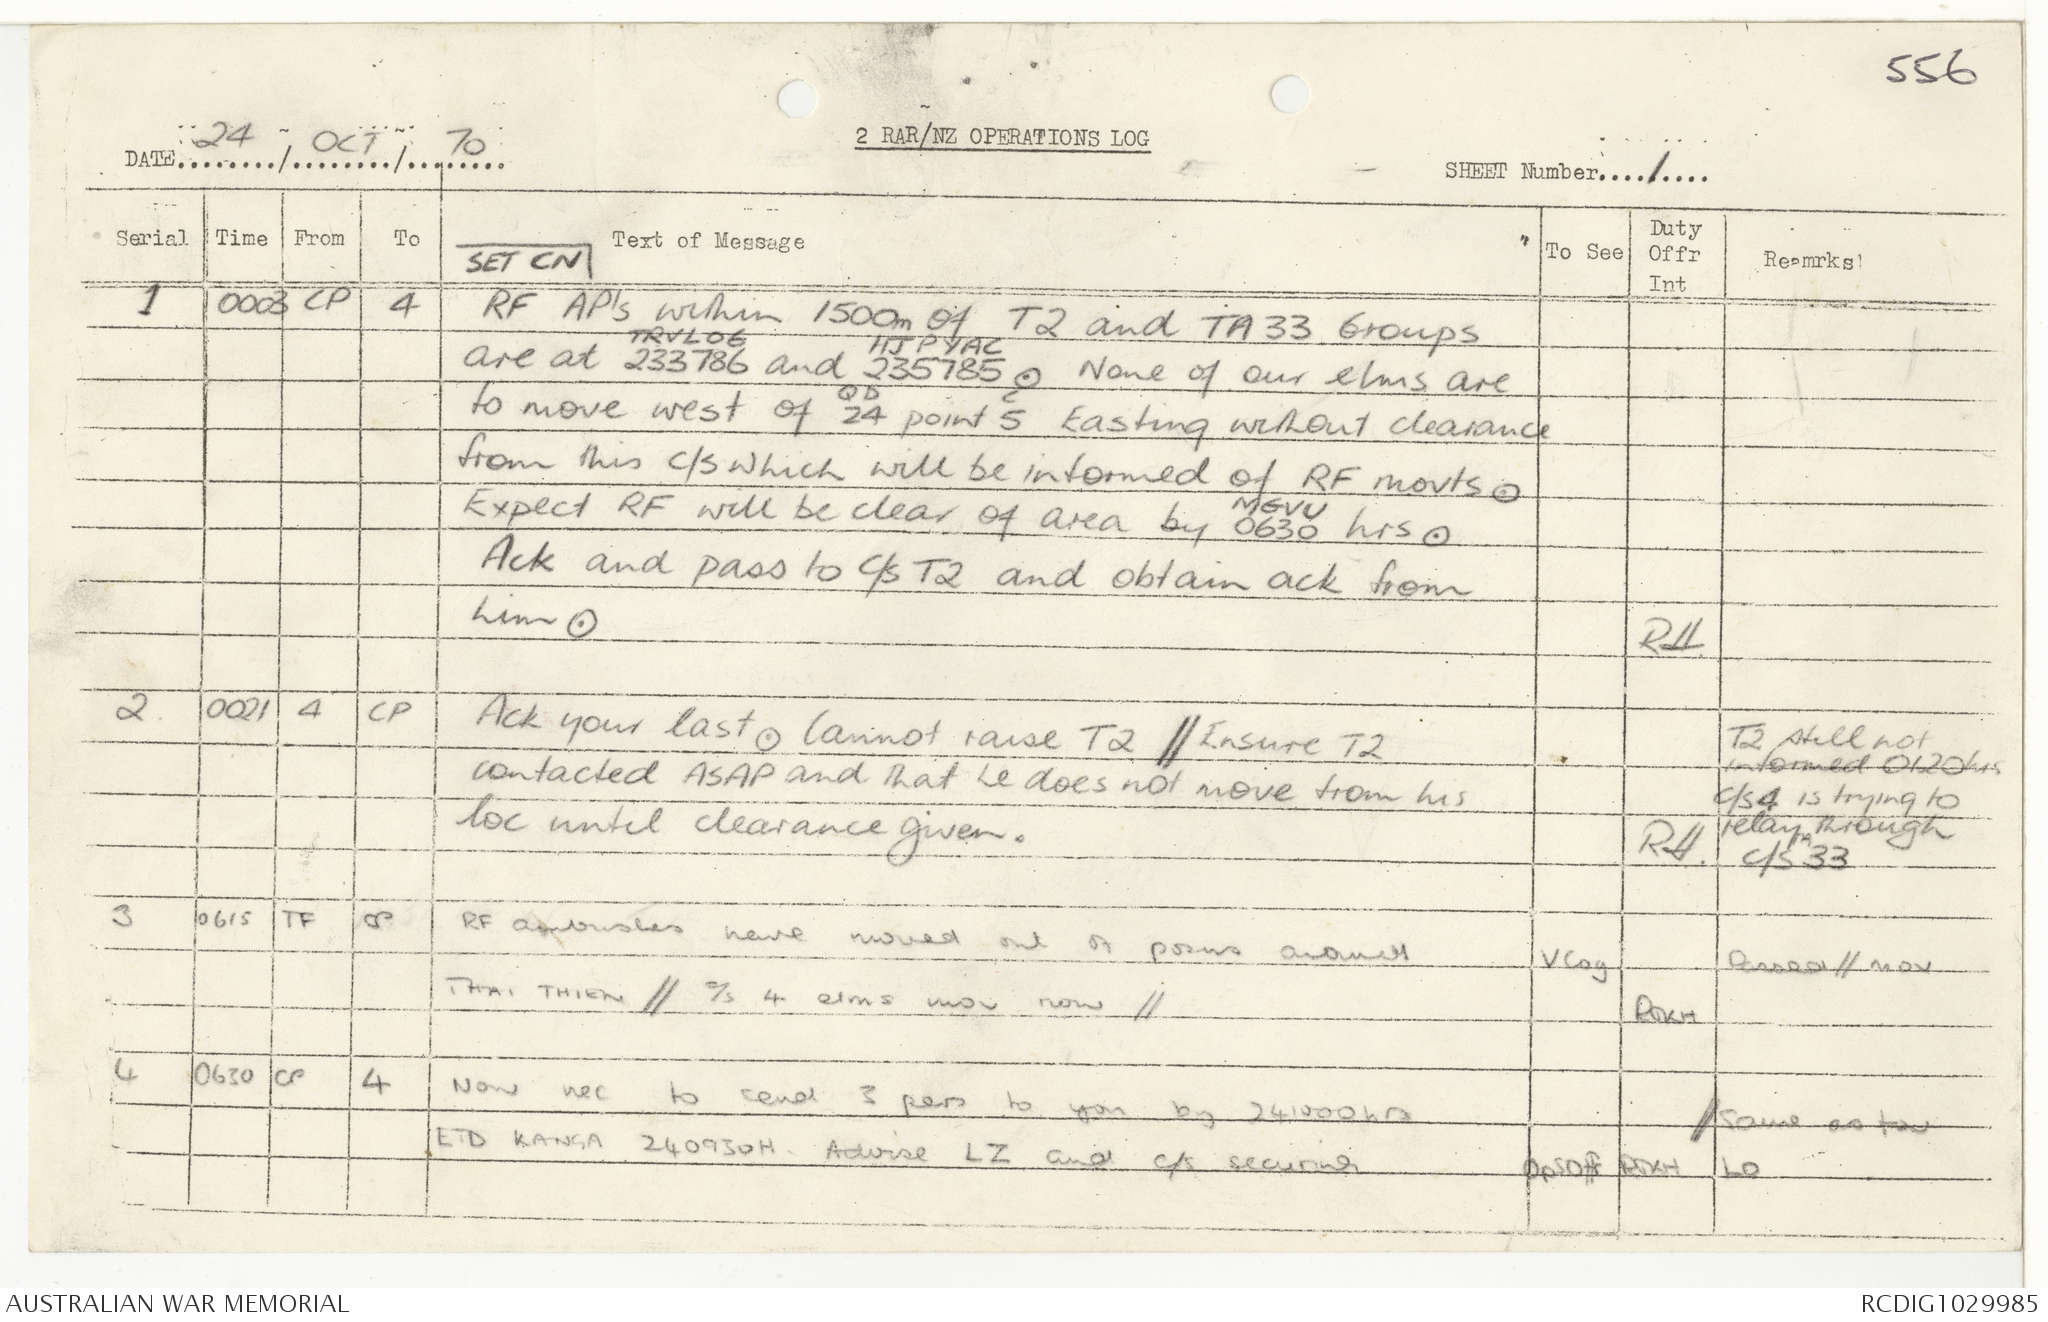 556
DATE 24 / OCT / 70
2 RAR/NZ OPERATIONS LOG
SHEET Number 1
Serial Time From To Text of Message To See Duty Offr Int Remrks
SET CN
1 0003 CP 4 RF AP's within 1500m of T2 and TA 33 Groups
TRVLOE HJPYAC
are at 233786 and 235785 ⊙ None of our elms are
QD C
to move west of 24 point 5 Easting without clearance
from this c/s which will be informed of RF movts ⊙
MGVU
Expect RF will be clear of area by 0630 hrs ⊙
Ack and pass to c/s T2 and obtain ack from
him ⊙ RH.
2. 0021 4 CP Ack your last ⊙ Cannot raise T2 // Ensure T2
contacted ASAP and that he does not move from his
loc until clearance given. RH.
T2 still not
informed 0120hrs
c/s 4 is trying to
relay through
c/s 33
3 0615 TF CP RF ambushes have moved out of posns around VCog Passed // mov
THAI THIEN // c/s 4 elms mov now // RJKH
4 0630 CP 4 Now nec to send 3 pers to you by 241000hrs // Same as for
ETD KANGA 240930H. Advise LZ and c/s securing OpsOffr RJKH LO
AUSTRALIAN WAR MEMORIAL
RCDIG1029985